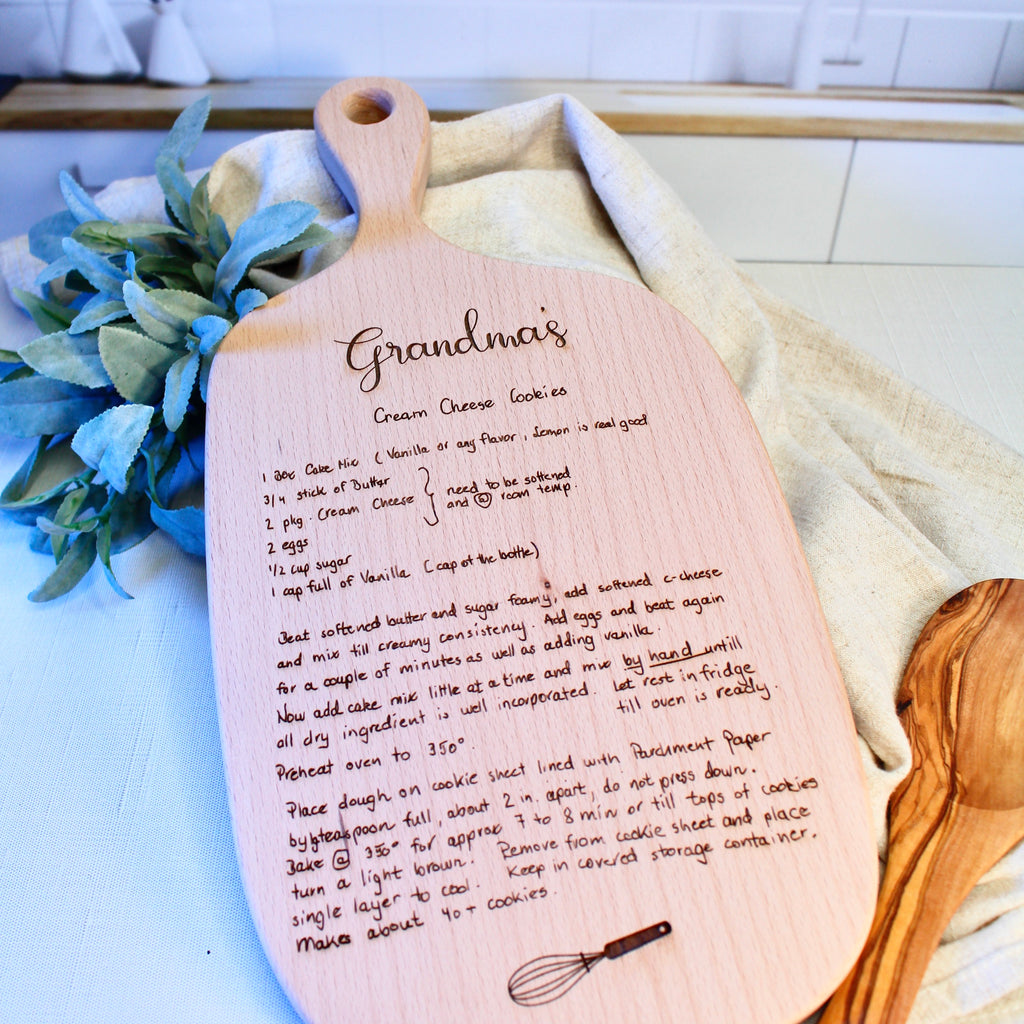 Grandma's
Cream Cheese Cookies
1 Box Cake Mix ( Vanilla or any flavor, Lemon is real good
3/4 stick of Butter
2 pkg. Cream Cheese } need to be softened
and @ room temp.
2 eggs
1/2 cup sugar
1 cap full of Vanilla (cap of the bottle)
Beat softened butter and sugar foamy, add softened c-cheese
and mix till creamy consistency. Add eggs and beat again
for a couple of minutes as well as adding vanilla.
Now add cake mix little at a time and mix by hand untill
all dry ingredient is well incorporated. Let rest in fridge
till oven is ready.
Preheat oven to 350°.
Place dough on cookie sheet lined with Parchment Paper
by teaspoon full, about 2 in. apart, do not press down.
Bake @ 350° for approx 7 to 8 min or till tops of cookies
turn a light brown. Remove from cookie sheet and place
single layer to cool. Keep in covered storage container.
Makes about 40+ cookies.